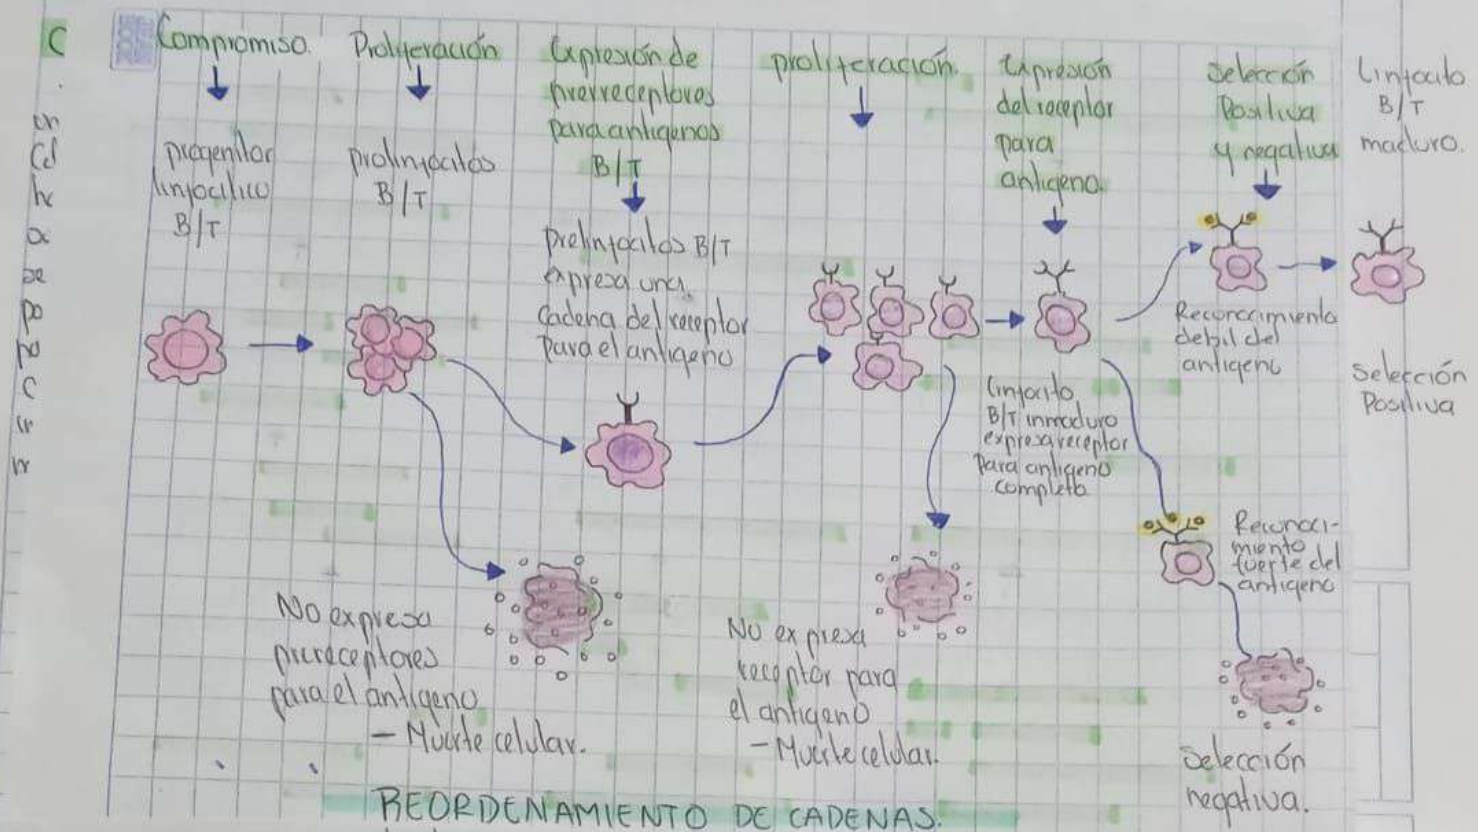 C
Compromiso.
progenitor
linfocitico
B/T
Proliferación
prolinfocitos
B/T
Expresión de
prerreceptores
para antigenos
B/T
Prelinfocitos B/T
expresa una
cadena del receptor
para el antigeno
proliferación.
Expresión
del receptor
para
antigeno.
Linfocito
B/T inmaduro
expresa receptor
para antigeno
completo
Selección
Positiva
y negativa
Reconocimiento
debil del
antigeno
Linfocito
B/T
maduro.
Selección
Positiva
Reconoci-
miento
fuerte del
antigeno
Selección
negativa.
No expresa
prereceptores
para el antigeno
- Muerte celular.
No expresa
receptor para
el antigeno
- Muerte celular.
REORDENAMIENTO DE CADENAS.